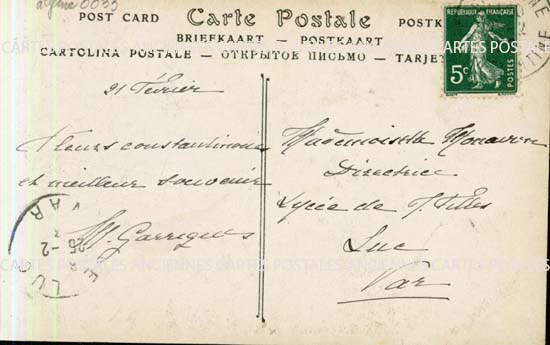 algerie 0033
POST CARD Carte Postale POSTK
BRIEFKAART - POSTKAART
CARTOLINA POSTALE - ОТКРЫТОЕ ПИСЬМО - TARJET
RÉPUBLIQUE FRANÇAISE
5c
POSTES
21 Février
Fleurs constantinoises
et meilleur souvenir
M. Garrigues
Mademoiselle
Directrice
Lycée de J. Filles
Luc
Var
LUC
VAR
CARTES POSTALES ANCIENNES CARTES POSTALES ANCIENNES CARTES POSTALES